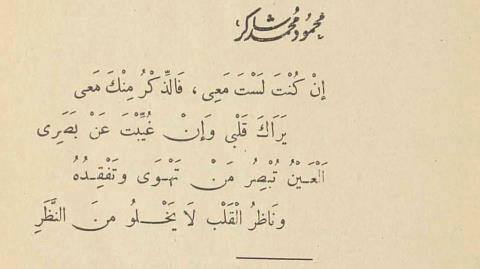 محمود محمد شاكر
إنْ كُنْتَ لَسْتَ مَعِى ، فَالذِّكْرُ مِنْكَ مَعى
يَرَاكَ قَلْبى وَإنْ غُيِّبْتَ عَنْ بَصَرِى
اَلْعَـيْنُ تُبْصِرُ مَنْ تَهْـوَى وَتَفْقِـدُهُ
ونَاظرُ الْقَلْب لَا يَخْـلُو منَ النَّظَرِ